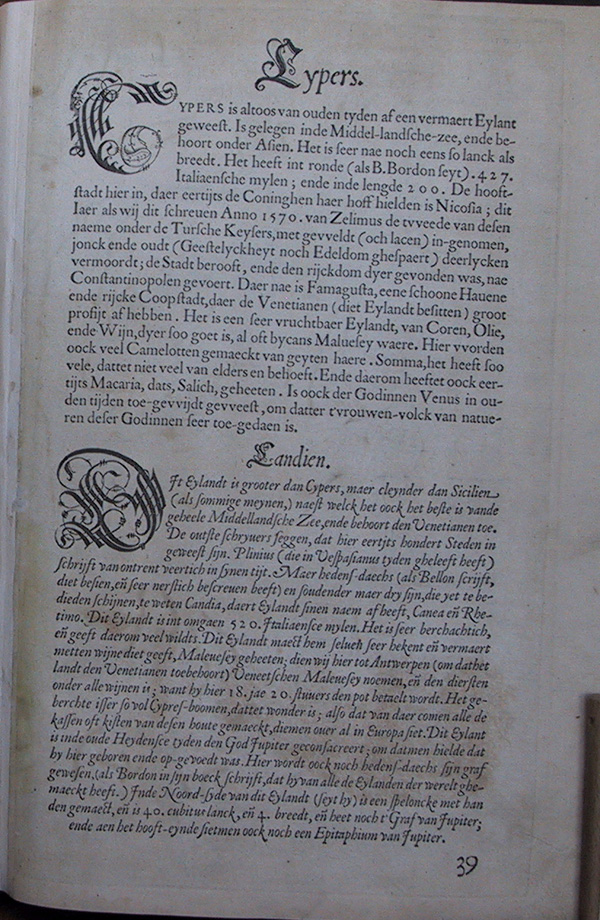 Cypers.
CYPERS is altoos van ouden tyden af een vermaert Eylant
geweest. Is gelegen inde Middel-landsche-zee, ende be-
hoort onder Asien. Het is seer nae noch eens so lanck als
breedt. Het heeft int ronde (als B. Bordon seyt). 427.
Italiaensche mylen; ende inde lengde 200. De hooft-
stadt hier in, daer eertijts de Coninghen haer hoff hielden is Nicosia; dit
Iaer als wij dit schreuen Anno 1570. van Zelimus de tvveede van desen
naeme onder de Tursche Keysers, met gevveldt (och lacen) in-genomen,
jonck ende oudt (Geestelyckheyt noch Edeldom ghespaert) deerlycken
vermoordt; de Stadt berooft, ende den rijckdom dyer gevonden was, nae
Constantinopolen gevoert. Daer nae is Famagusta, eene schoone Hauene
ende rijcke Coopstadt, daer de Venetianen (diet Eylandt besitten) groot
profijt af hebben. Het is een seer vruchtbaer Eylandt, van Coren, Olie,
ende Wijn, dyer soo goet is, al oft bycans Maluesey waere. Hier vvorden
oock veel Camelotten gemaeckt van geyten haere. Somma, het heeft soo
vele, dattet niet veel van elders en behoeft. Ende daerom heeftet oock eer-
tijts Macaria, dats, Salich, geheeten. Is oock der Godinnen Venus in ou-
den tijden toe-gevvijdt gevveest, om datter t'vrouwen-volck van natue-
ren deser Godinnen seer toe-gedaen is.
Candien.
DIt Eylandt is grooter dan Cypers, maer cleynder dan Sicilien
(als sommige meynen,) naest welck het oock het beste is vande
geheele Middellandsche Zee, ende behoort den Venetianen toe.
De outste schryuers seggen, dat hier eertijts hondert Steden in
geweest sijn. Plinius (die in Vespasianus tyden gheleeft heeft)
schrijft van ontrent veertich in synen tijt. Maer hedens-daechs (als Bellon scrijft,
diet besien, en̄ seer nerstich bescreuen heeft) en soudender maer dry sijn, die yet te be-
dieden schijnen, te weten Candia, daert Eylandt sinen naem af heeft, Canea en̄ Rhe-
timo. Dit Eylandt is int omgaen 520. Italiaensce mylen. Het is seer berchachtich,
en̄ geeft daerom veel wildts. Dit Eylandt maect hem seluen seer bekent en̄ vermaert
metten wijne diet geeft, Maleuesey geheeten; dien wij hier tot Antwerpen (om dathet
landt den Venetianen toebehoort) Veneetschen Maleuesey noemen, en̄ den diersten
onder alle wijnen is; want hy hier 18. jae 20. stuuers den pot betaelt wordt. Het ge-
berchte isser so vol Cypres-boomen, dattet wonder is; also dat van daer comen alle de
kassen oft kisten van desen houte gemaeckt, diemen ouer al in Europa siet. Dit Eylant
is inde oude Heydensce tyden den God Jupiter geconsacreert; om datmen hielde dat
hy hier geboren ende op-gevoedt was. Hier wordt oock noch hedens-daechs sijn graf
gewesen, (als Bordon in sijn boeck schrijft, dat hy van alle de Eylanden der werelt ghe-
maeckt heeft.) Inde Noord-syde van dit Eylandt (seyt hy) is een speloncke met han
den gemaect, en̄ is 40. cubitus lanck, en̄ 4. breedt, en̄ heet noch t'Graf van Jupiter;
ende aen het hooft-eynde sietmen oock noch een Epitaphium van Jupiter.
39